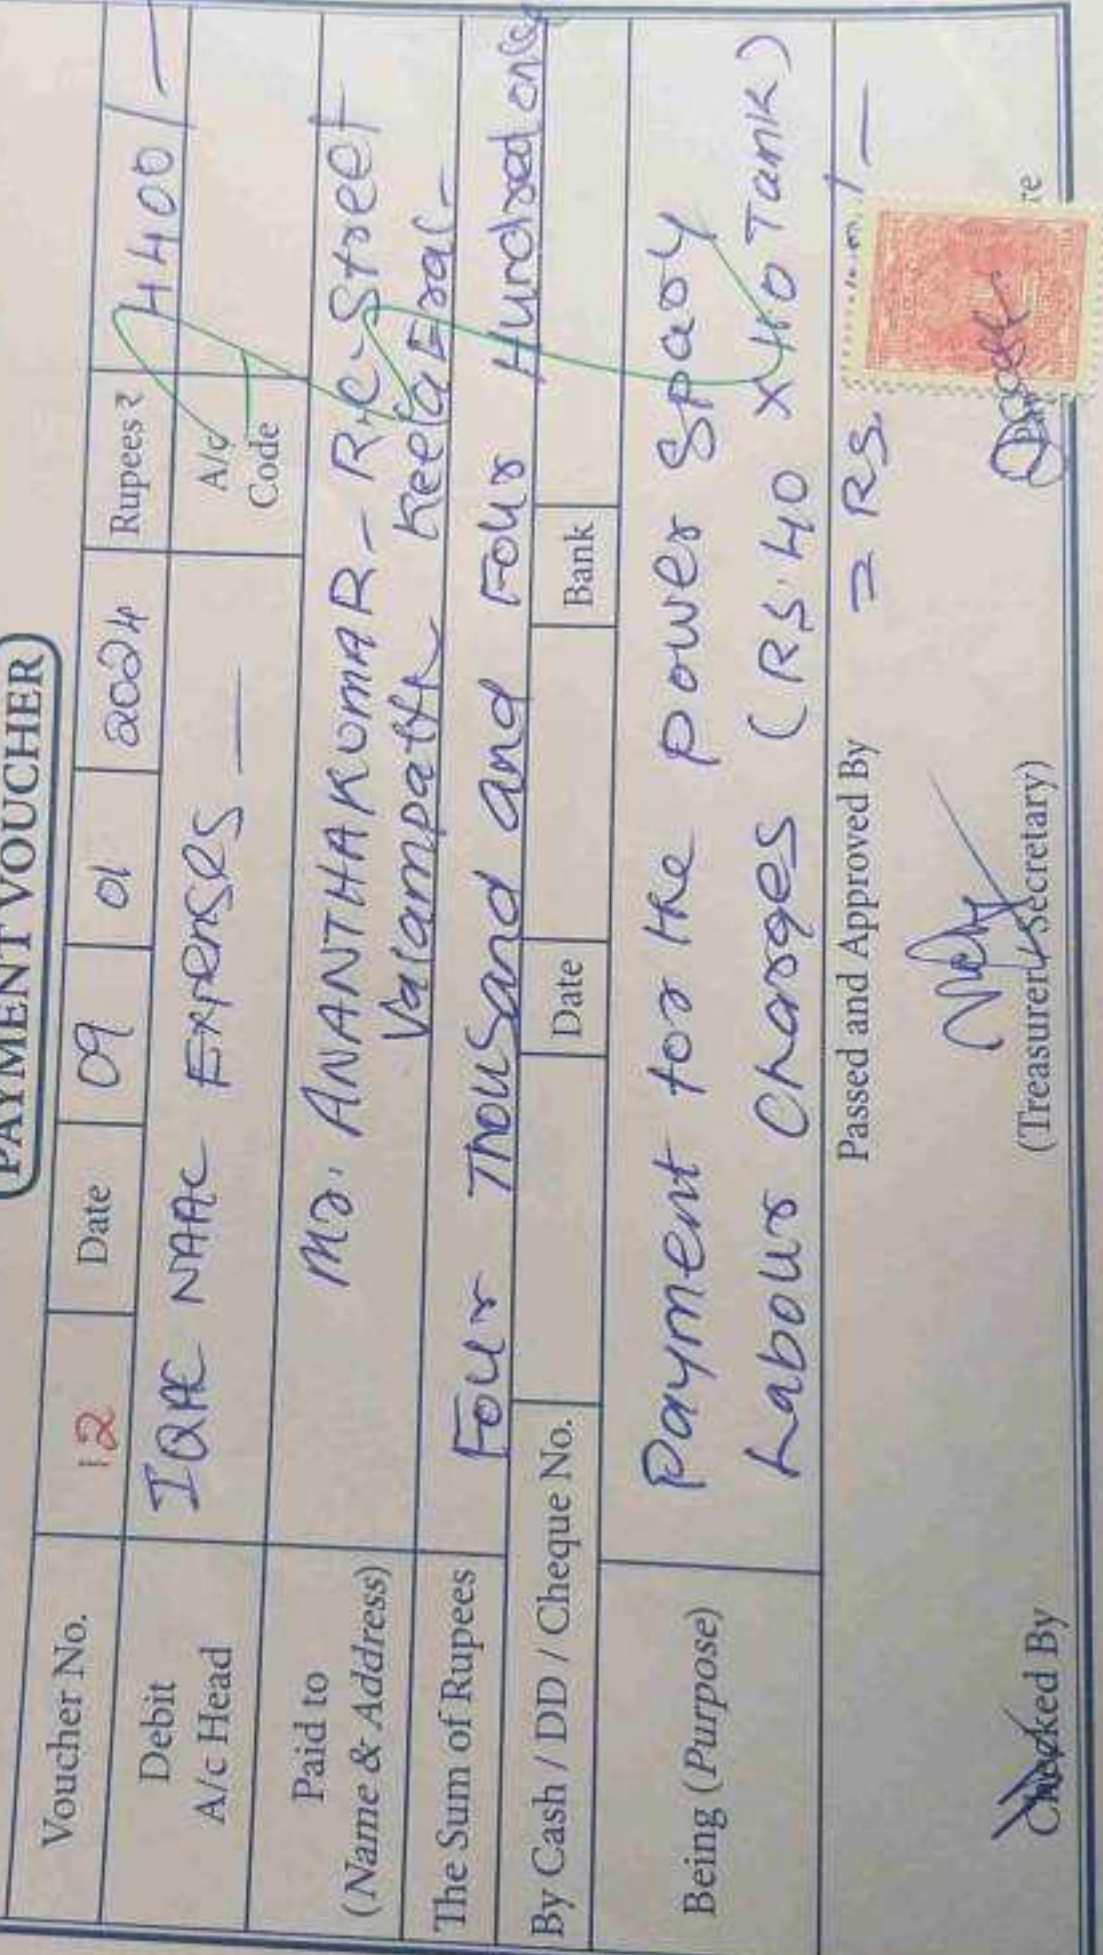 PAYMENT VOUCHER
Voucher No. 12 Date 09 01 2024 Rupees ₹ 4400/-
Debit A/c Head IQAC NAAC Expenses — A/c Code
Paid to (Name & Address) Mr. ANANTHAKUMAR - R.C-Street
Valampatti Keela Eral-
The Sum of Rupees Four Thousand and Four Hundred only
By Cash / DD / Cheque No. Date Bank
Being (Purpose) Payment for the power Spary
Labour Charges (RS.40 x 110 Tank)
Passed and Approved By = RS. /-
Checked By (Treasurer/Secretary)